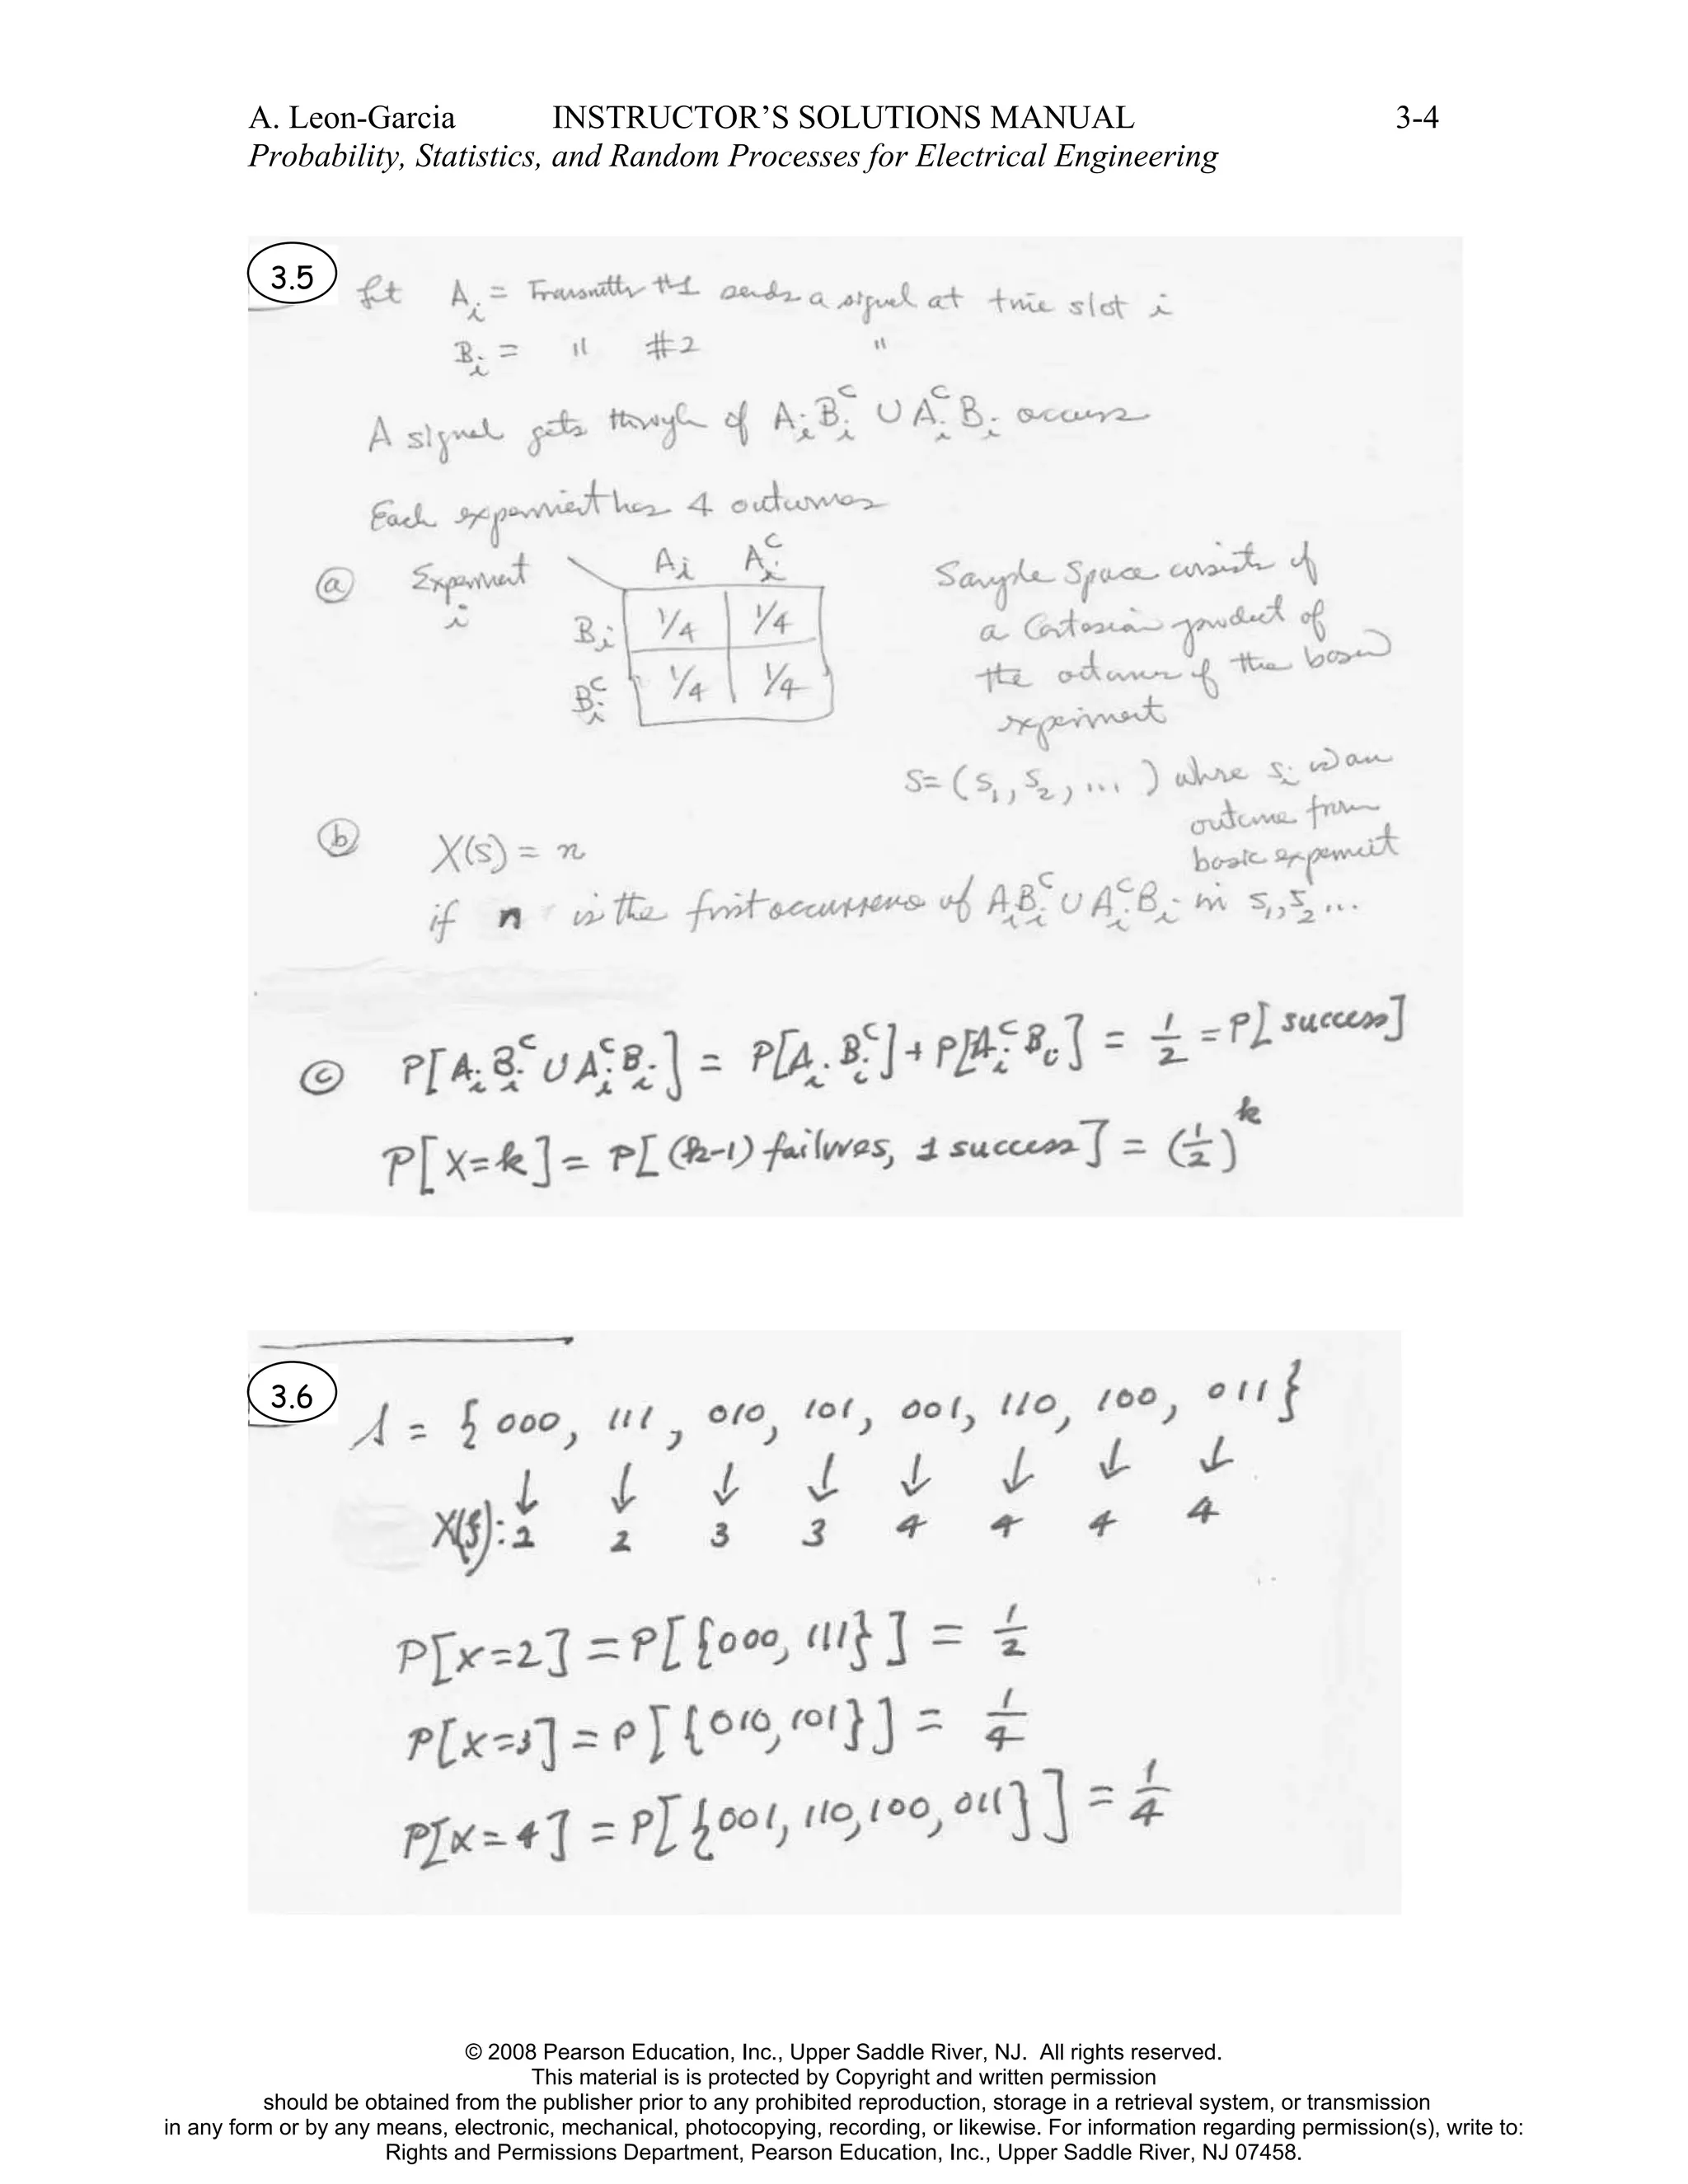 A. Leon-Garcia INSTRUCTOR’S SOLUTIONS MANUAL 3-4
Probability, Statistics, and Random Processes for Electrical Engineering
3.5 Let A_i = Transmitter #1 sends a signal at time slot i
B_i = " #2 "
A signal gets through if A_i B_i^c ∪ A_i^c B_i occurs
Each experiment has 4 outcomes
(a) Experiment i
A_i A_i^c
B_i 1/4 1/4
B_i^c 1/4 1/4
Sample Space consists of
a Cartesian product of
the outcomes of the basic
experiment
S = (s_1, s_2, ... ) where s_i is an
outcome from
basic experiment
(b) X(s) = n
if n is the first occurrence of A_i B_i^c ∪ A_i^c B_i in s_1, s_2 ...
(c) P[A_i B_i^c ∪ A_i^c B_i] = P[A_i B_i^c] + P[A_i^c B_i] = 1/2 = P[success]
P[X=k] = P[(k-1) failures, 1 success] = (1/2)^k
3.6 S = {000, 111, 010, 101, 001, 110, 100, 011}
↓ ↓ ↓ ↓ ↓ ↓ ↓ ↓
X(ζ): 2 2 3 3 4 4 4 4
P[X=2] = P[{000, 111}] = 1/2
P[X=3] = P[{010, 101}] = 1/4
P[X=4] = P[{001, 110, 100, 011}] = 1/4
© 2008 Pearson Education, Inc., Upper Saddle River, NJ. All rights reserved.
This material is is protected by Copyright and written permission
should be obtained from the publisher prior to any prohibited reproduction, storage in a retrieval system, or transmission
in any form or by any means, electronic, mechanical, photocopying, recording, or likewise. For information regarding permission(s), write to:
Rights and Permissions Department, Pearson Education, Inc., Upper Saddle River, NJ 07458.